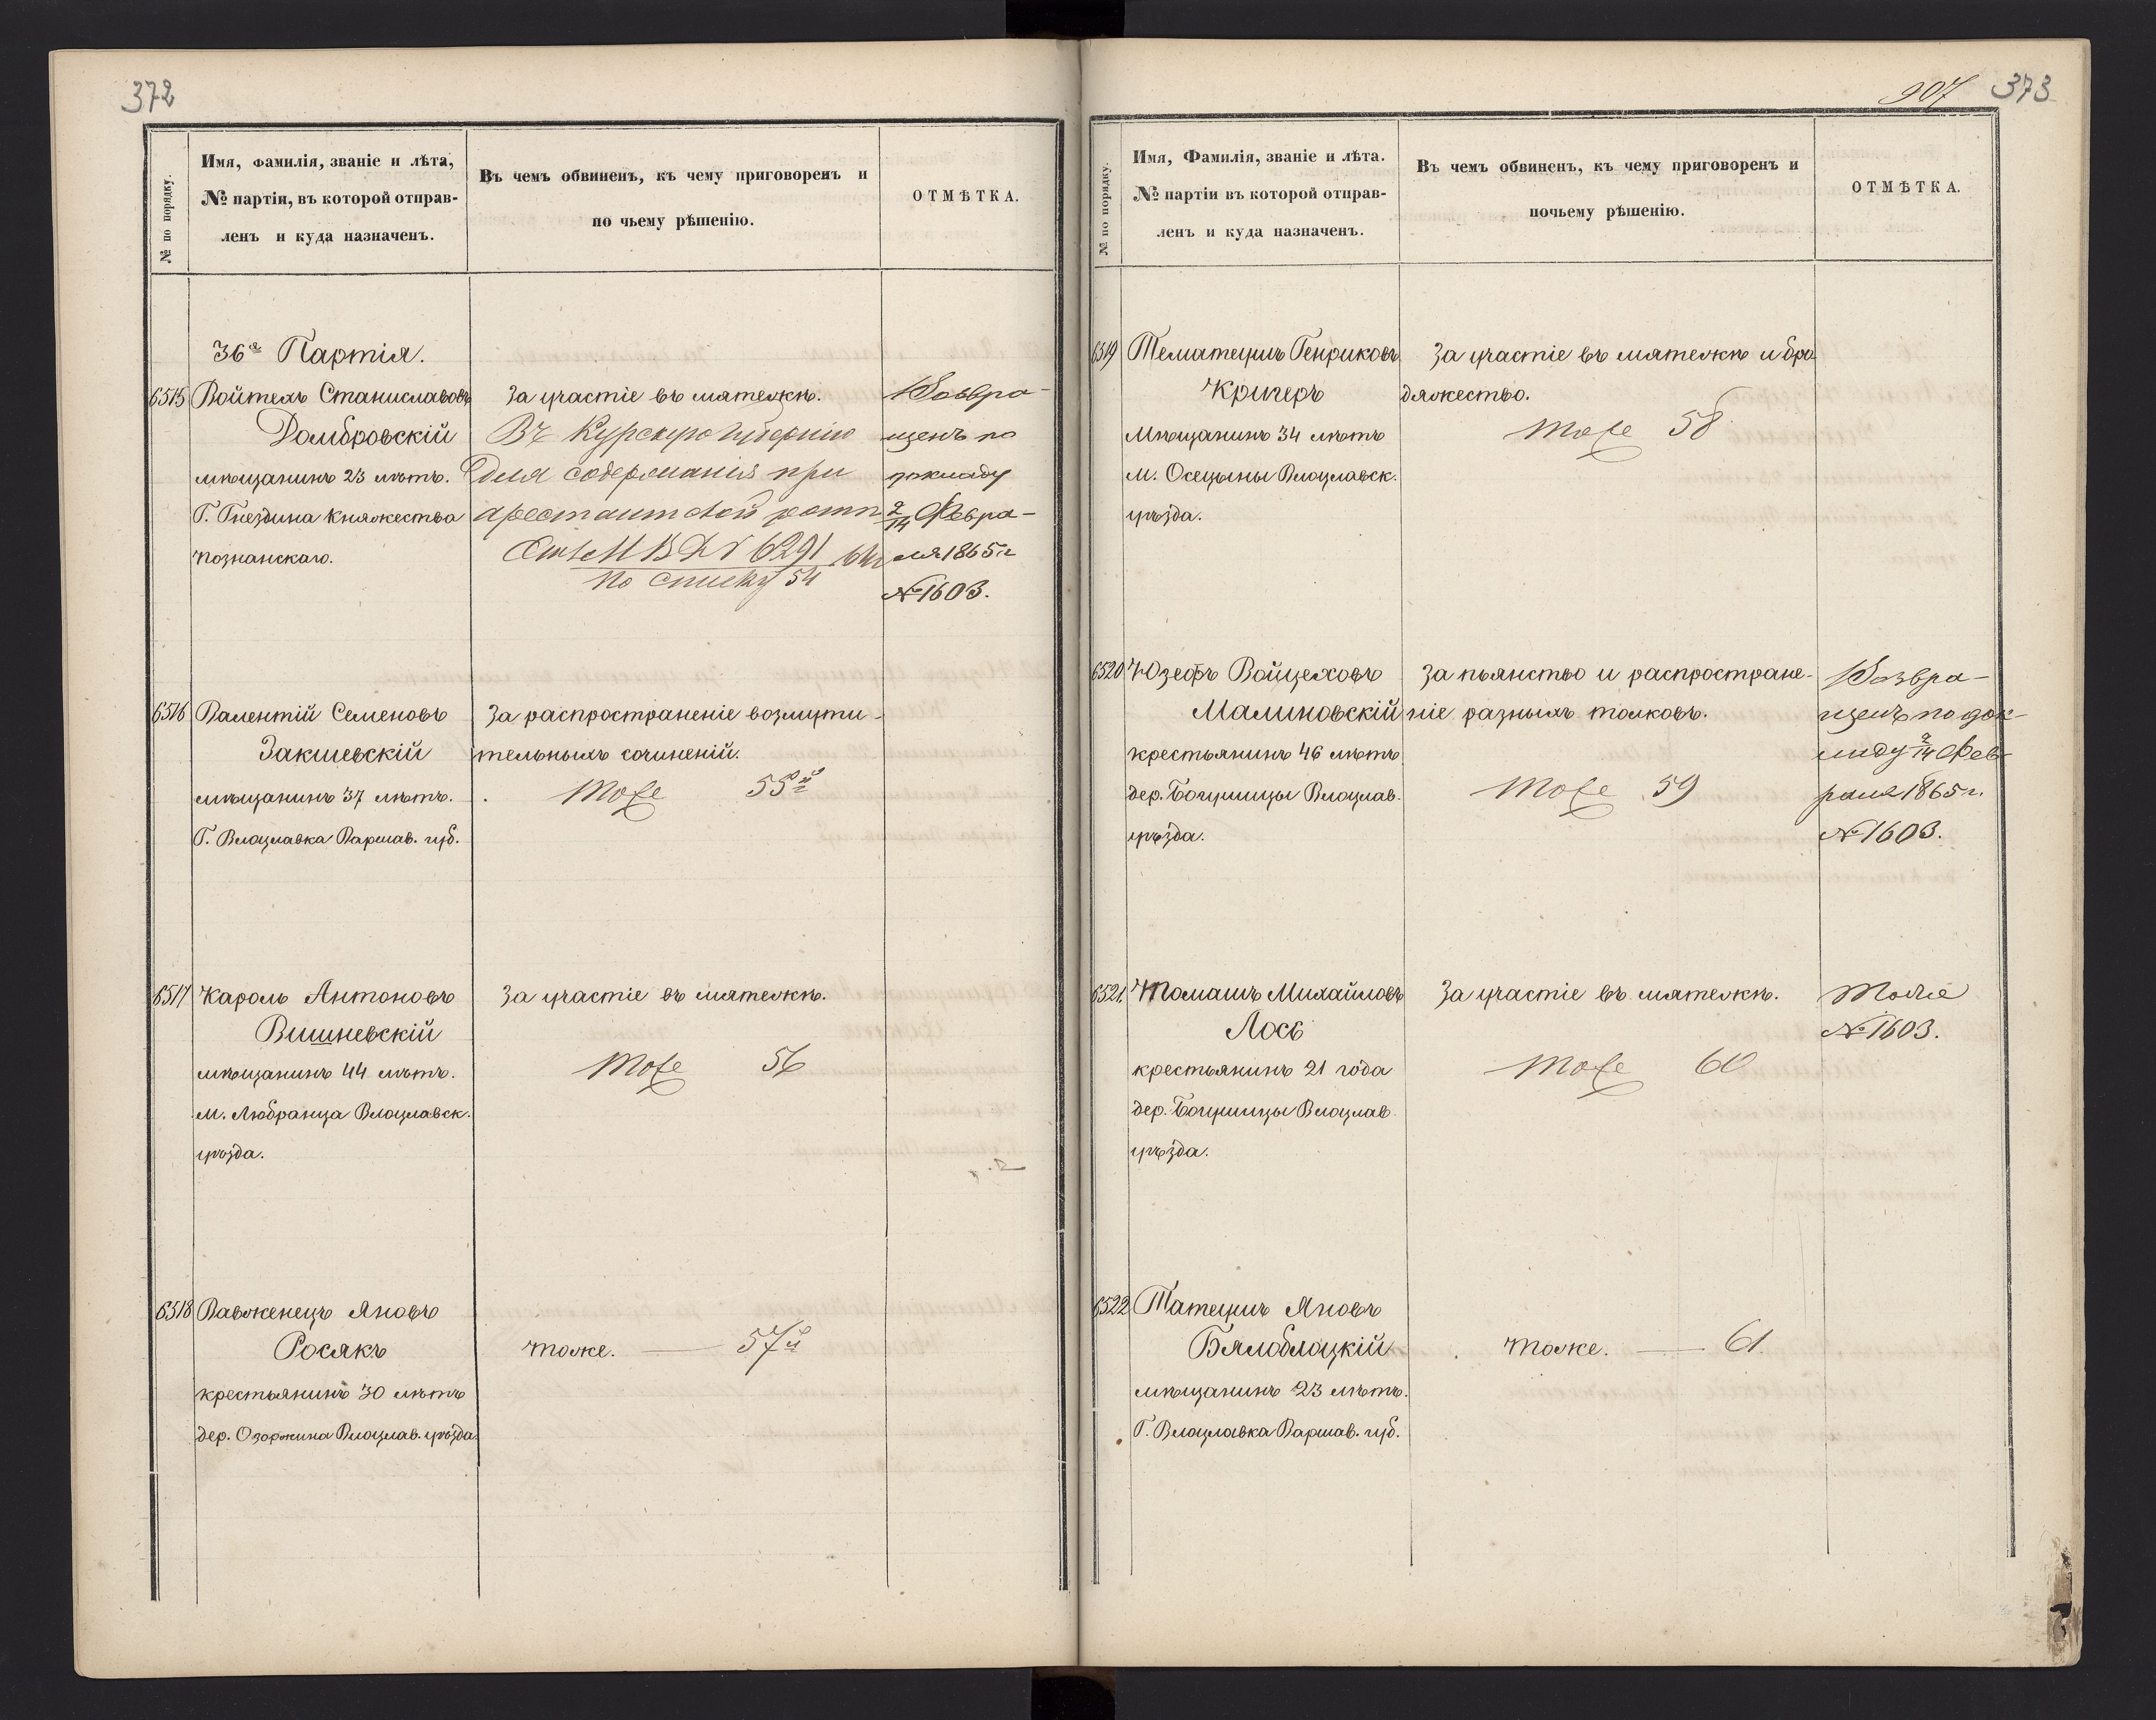 372
№ по порядку.
Имя, фамилія, званіе и лѣта,
№ партіи, въ которой отправ-
ленъ и куда назначенъ.
Въ чемъ обвиненъ, къ чему приговоренъ и
по чьему рѣшенію.
ОТМѢТКА.
36я Партія.
6515 Войтехъ Станиславовъ
Домбровскій
мѣщанинъ 23 лѣтъ.
Г. Гнездина Княжества
Познанскаго.
За участіе въ мятежѣ.
Въ Курскую Губернію
для содержанія при
арестантской ротѣ
6291
по списку 54
Возвра-
щенъ по
докладу
2/14 Февра-
ля 1865 г
№ 1603.
6516 Валентій Семеновъ
Закшевскій
мѣщанинъ 37 лѣтъ.
Г. Влоцлавка Варшав. губ.
За распространеніе возмути-
тельныхъ сочиненій.
Тоже 55й
6517 Кароль Антоновъ
Вишневскій
мѣщанинъ 44 лѣтъ.
м. Любранца Влоцлавск.
уѣзда.
За участіе въ мятежѣ.
Тоже 56
6518 Вавженецъ Яновъ
Росякъ
крестьянинъ 30 лѣтъ
дер. Озоржина Влоцлав. уѣзда.
Тоже. — 57й
907 373
№ по порядку.
Имя, Фамилія, званіе и лѣта.
№ партіи въ которой отправ-
ленъ и куда назначенъ.
Въ чемъ обвиненъ, къ чему приговоренъ и
почьему рѣшенію.
ОТМѢТКА.
6519 Генриковъ
Кригеръ
Мѣщанинъ 34 лѣтъ
м. Осецыны Влоцлавск.
уѣзда.
За участіе въ мятежѣ и бро
дяжество.
Тоже 58
6520 Юзефъ Войцеховъ
Малиновскій
крестьянинъ 46 лѣтъ
дер. Влоцлав.
уѣзда.
За пьянство и распростране-
ніе разныхъ толковъ.
Тоже 59
Возвра-
щенъ по док-
ладу 2/14 Фев-
раля 1865 г.
№ 1603.
6521. Томашъ Михайловъ
Лось
крестьянинъ 21 года
дер. Влоцлав.
уѣзда.
За участіе въ мятежѣ.
Тоже 60
Тоже
№ 1603.
6522 Яновъ
Бялоблоцкій
мѣщанинъ 23 лѣтъ.
Г. Влоцлавка Варшав. губ.
Тоже. — 61